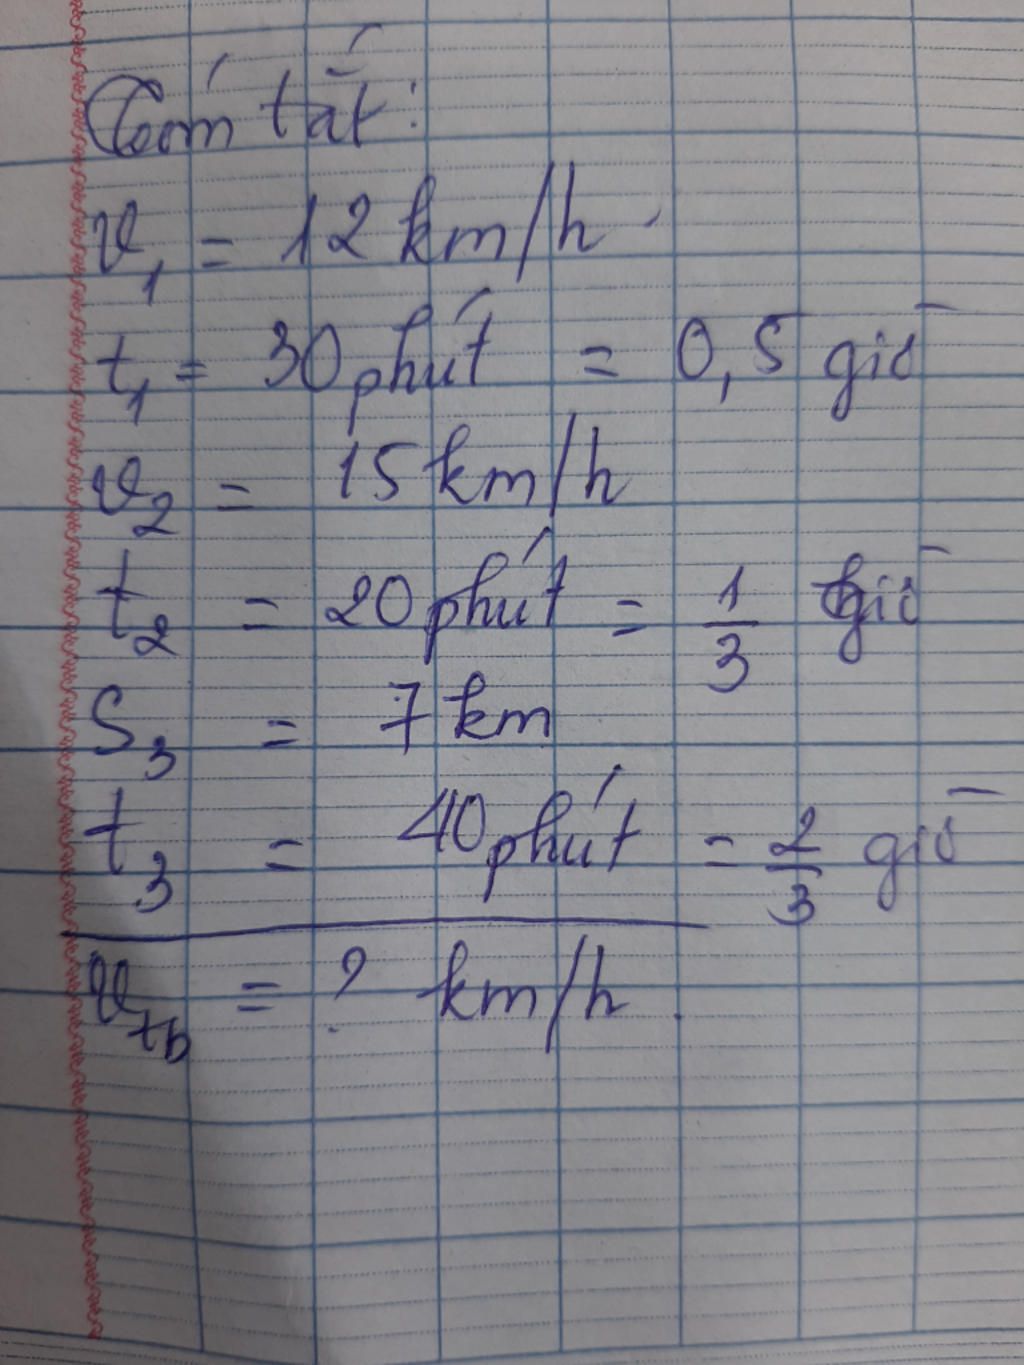 Tóm tắt:
v₁ = 12 km/h
t₁ = 30 phút = 0,5 giờ
v₂ = 15 km/h
t₂ = 20 phút = 1/3 giờ
S₃ = 7 km
t₃ = 40 phút = 2/3 giờ
v_tb = ? km/h.